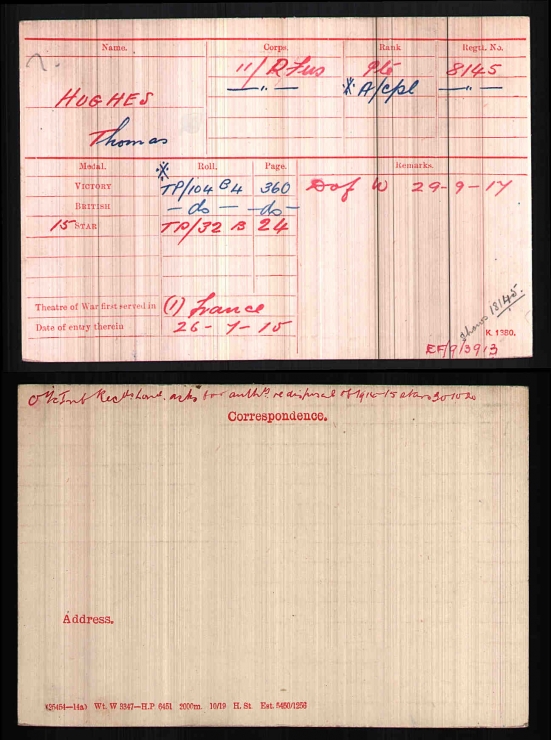 Name. Corps. Rank Regtl. No.
11/R Fus Pte 8145
HUGHES —"— * A/Cpl —"—
Thomas
Medal. * Roll. Page. Remarks.
VICTORY TP/104 B4 360 D of W 29-9-17
BRITISH — do — — do —
15 STAR TP/32 B 24
Theatre of War first served in (1) France
Date of entry therein 26-7-15
18145.
K. 1380.
EF/9/3913
O i/c Inf Recds Lond. asks for auth'y re disposal of 1914-15 stars 30 10 20
Correspondence.
Address.
(25454—14a) Wt. W 3347—H.P 6451 2000m. 10/19 H. St. Est. 5450/1256